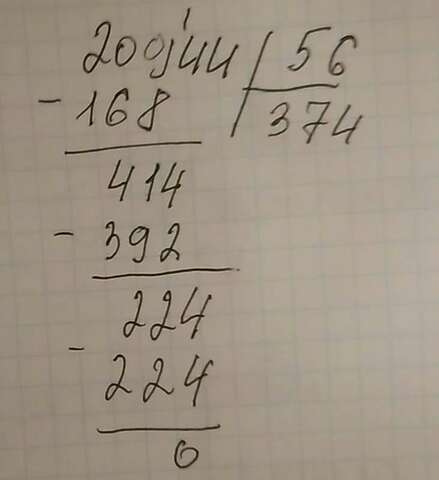 209'44 | 56
- 168 | 374
414
- 392
224
- 224
0